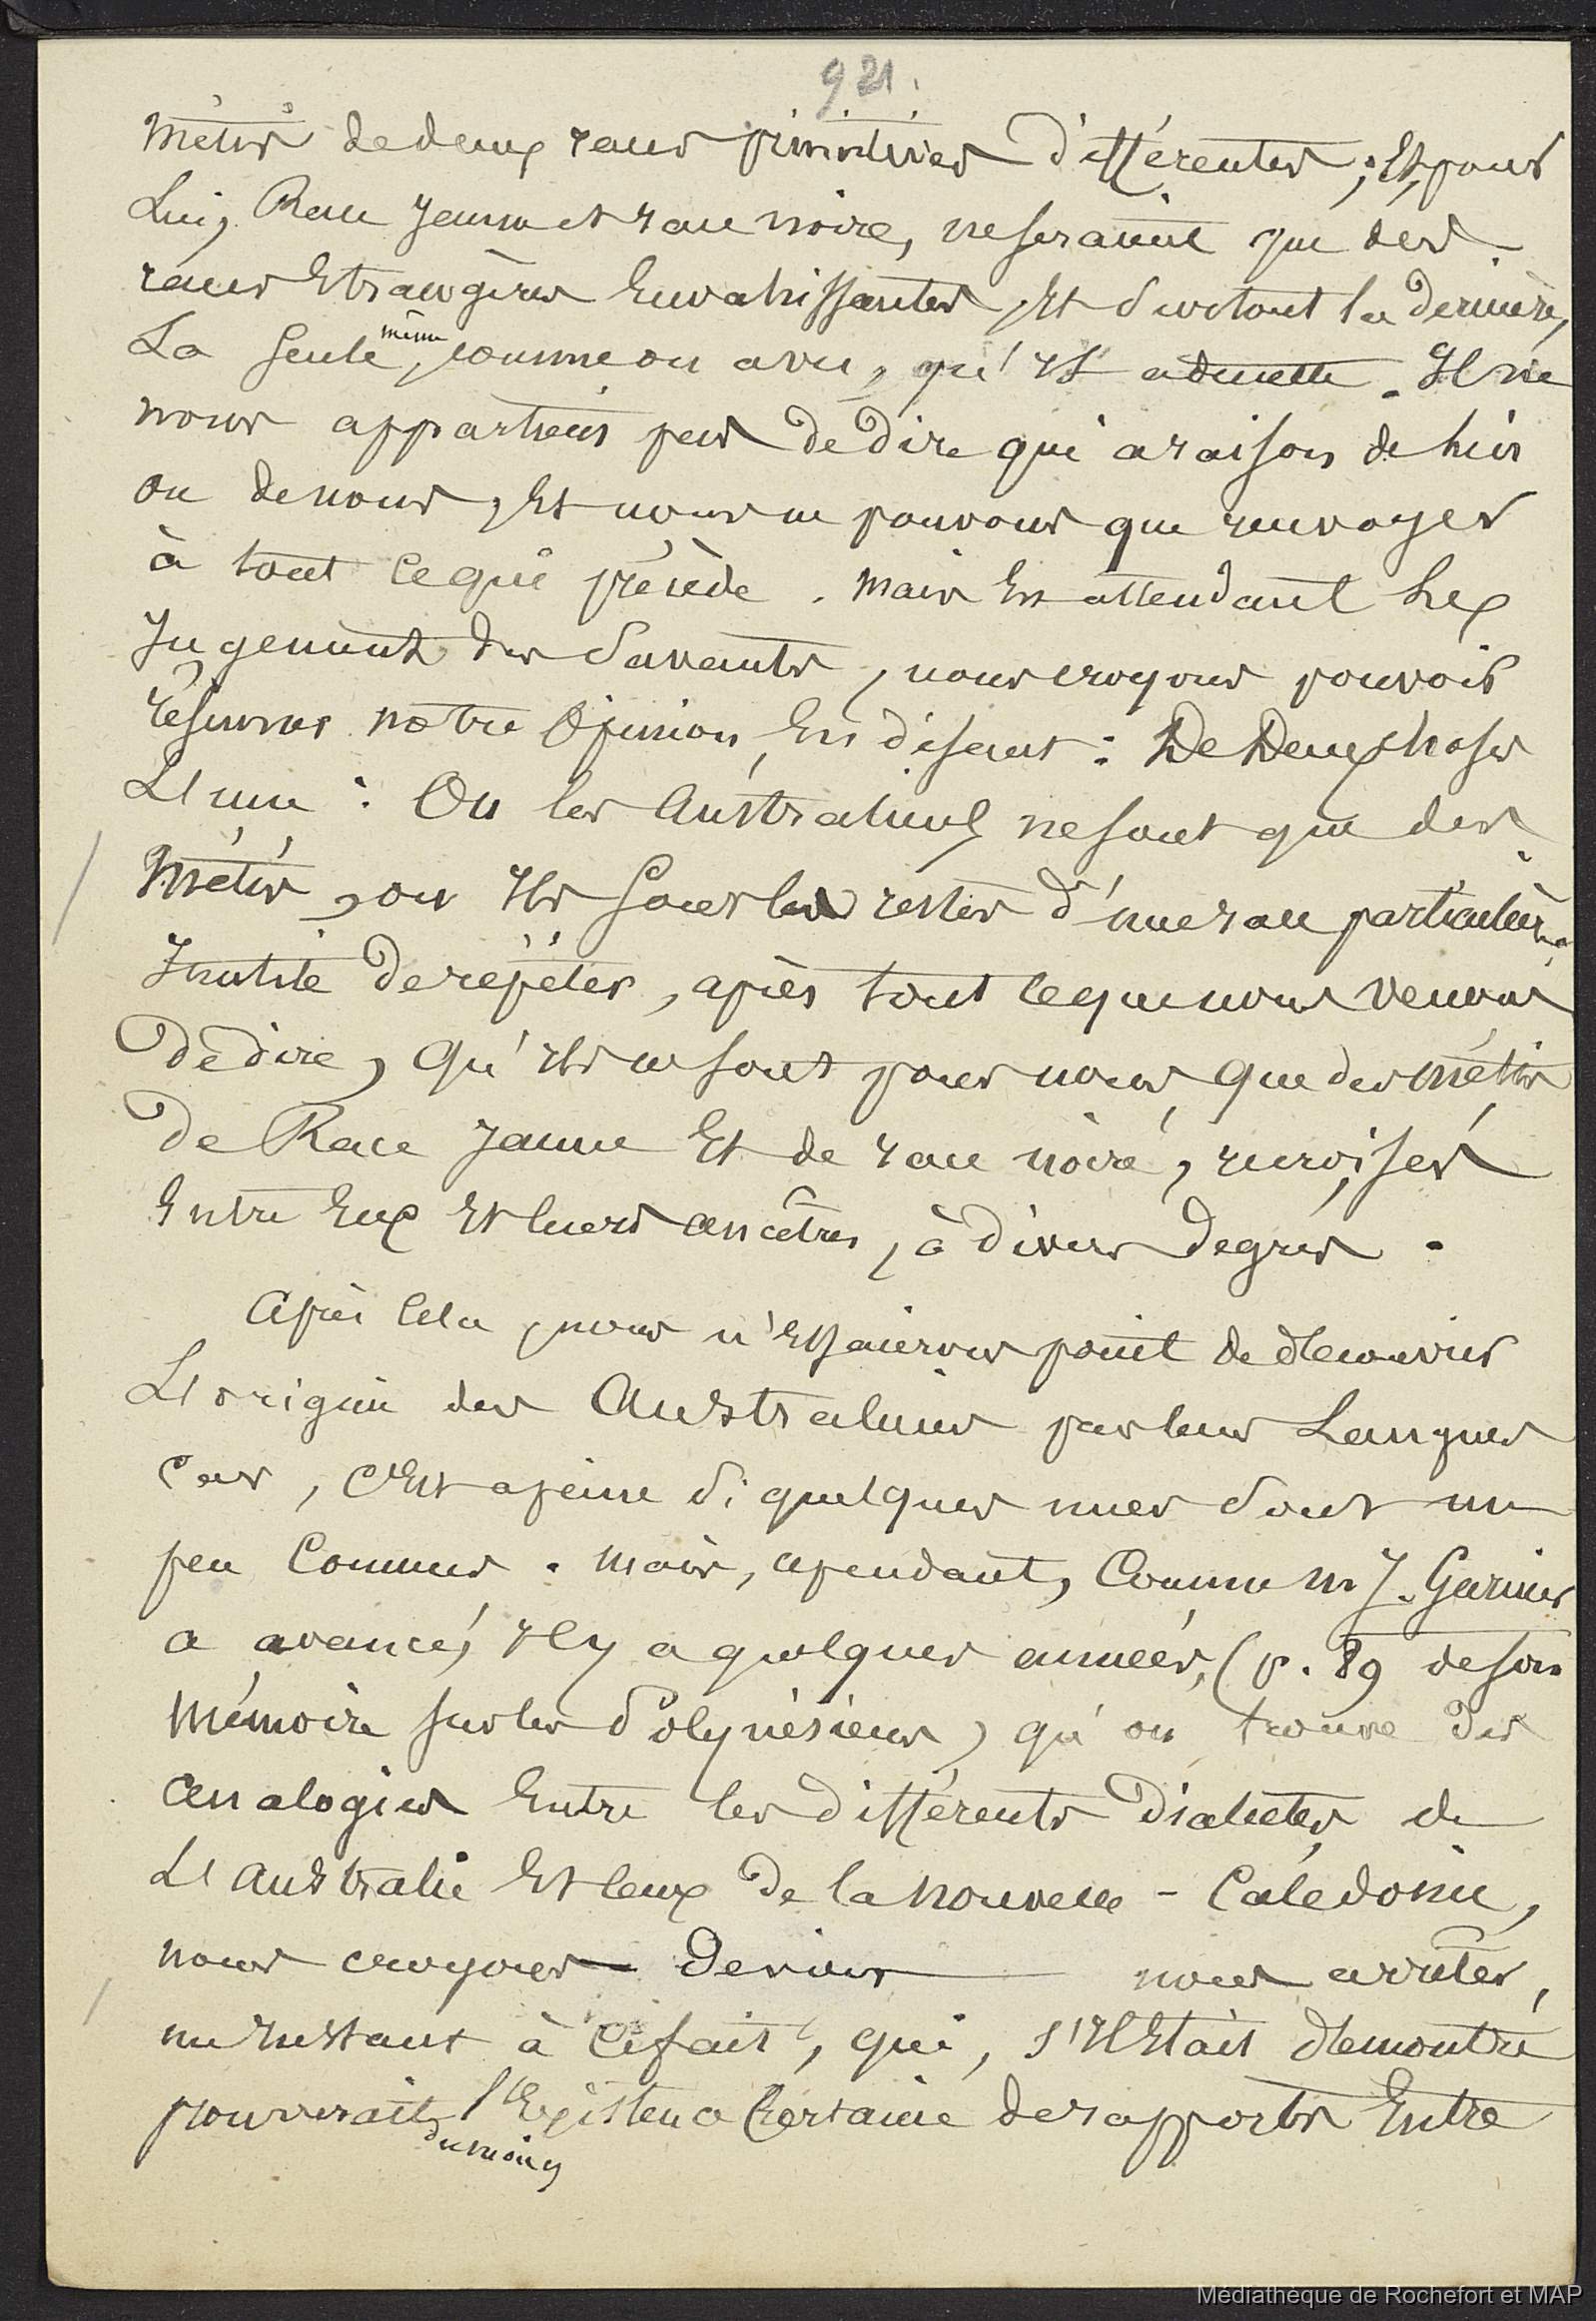 921.
métis de deux races primitives différentes ; Et, pour
Lui, Race jaune et race noire, ne seraient que des
races Etrangères Envahissantes, Et surtout la dernière,
La seule même, comme on a vu, qu'il admette. Il ne
nous appartient pas de dire qui a raison de lui
ou de nous, Et nous ne pouvons que renvoyer
à tout ce qui précède. Mais En attendant Les
Jugements des Savants, nous croyons pouvoir
résumer notre Opinion, En disant : De Deux choses
L'une : Ou les Australiens ne sont que des
Métis, ou Ils sont les restes d'une race particulière.
Inutile de répéter, après tout ce que nous venons
de dire, Qu'ils ne sont pour nous, que des métis
De Race jaune Et de race noire, recroisés
Entre Eux Et leurs ancêtres, à divers degrés.
Après cela, nous n'Essaierons point de découvrir
L'origine des Australiens par leurs Langues
Car, c'Est à peine si quelques unes sont un
peu Connues. Mais, cependant, Comme M J. Garnier
a avancé, Il y a quelques années, (p. 89 de son
Mémoire sur les Polynésiens) qu'on trouve des
analogies Entre les différents Dialectes de
L'Australie Et ceux de la Nouvelle-Calédonie,
nous croyons devoir nous arrêter,
un Instant à ce fait, qui, s'Il Etait démontré
prouverait, l'Existence Certaine de rapports Entre
du moins